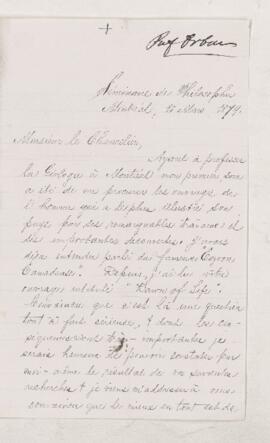 +
Séminaire de Philosophie
Montréal, Mars 1879.
Monsieur le Chevalier,
Ayant à professer
la Géologie à Montréal mon premier soin
a été de me procurer les ouvrages de
l'homme qui a le plus illustré son
pays par ses remarquables travaux et
ses importantes découvertes. J'avais
déjà entendu parler du fameux "Eozoon
Canadense". Depuis, j'ai lu votre
ouvrage intitulé "Dawn of Life".
Convaincu que c'est là une question
tout à fait sérieuse, & dont les con-
séquences sont très-importantes je
serais heureux de pouvoir constater par
moi-même le résultat de vos savantes
recherches & je viens m'adresser à vous
convaincu que le mieux en tout est de